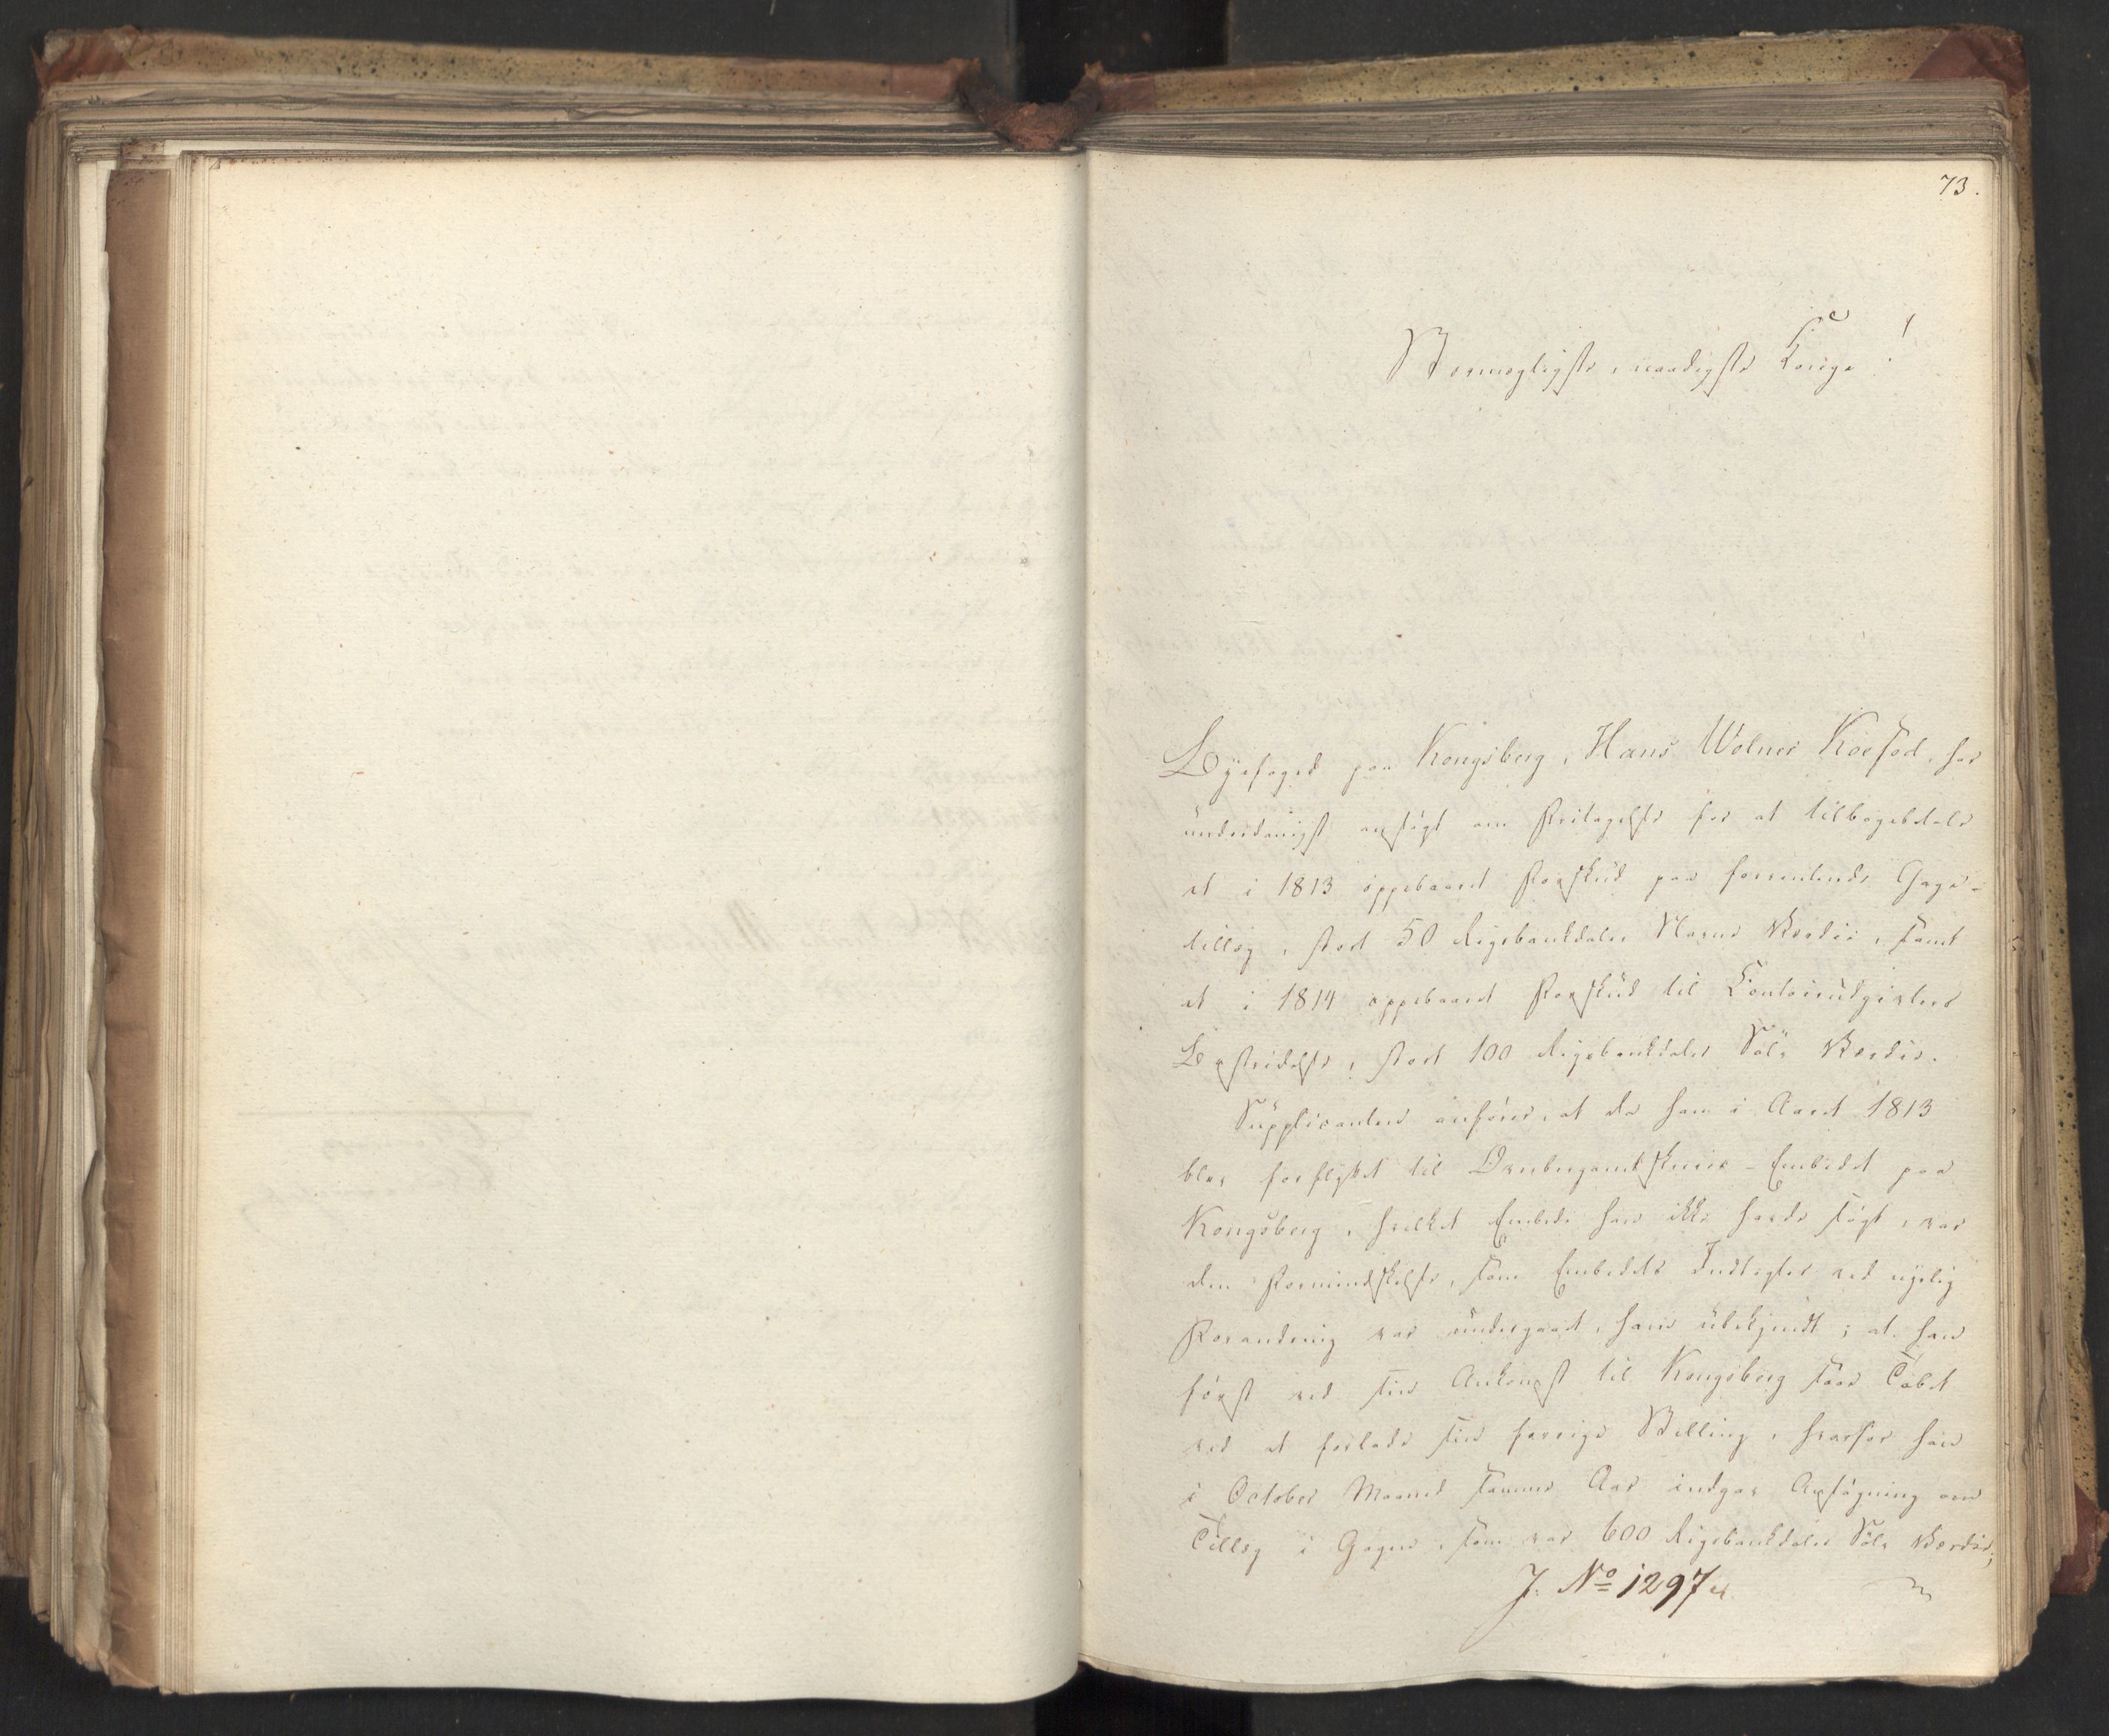 73.
Stormægtigste, naadigste Konge!
Byefoged paa Kongsberg, Hans Wolner Koefod, har
underdanigst ansøgt om Fritagelse for at tilbagebetale
et i 1813 oppebaaret Forskud paa forventende Gage-
tillæg, stort 50 Rigsbankdaler Navne Værdie, samt
et i 1814 oppebaaret Forskud til Contoirudgivters
Bestridelse, stort 100 Rigsbankdaler Sølv Værdie.
Supplicanten anfører, at da han i Aaret 1813
blev forflyttet til Overbergamtskriver-Embedet paa
Kongsberg, hvilket Embede han ikke havde søgt, var
den Formindskelse, som Embedets Indtægter ved nyelig
Forandring var undergaaet, ham ubekjendt; at han
først ved sin Ankomst til Kongsberg saae Tabet
ved at forlade sin forrige Stilling, hvorfor han
i October Maaned samme Aar indgav Ansøgning om
Tillæg i Gagen, som var 600 Rigsbankdaler Sølv Værdie;
J. No 1297